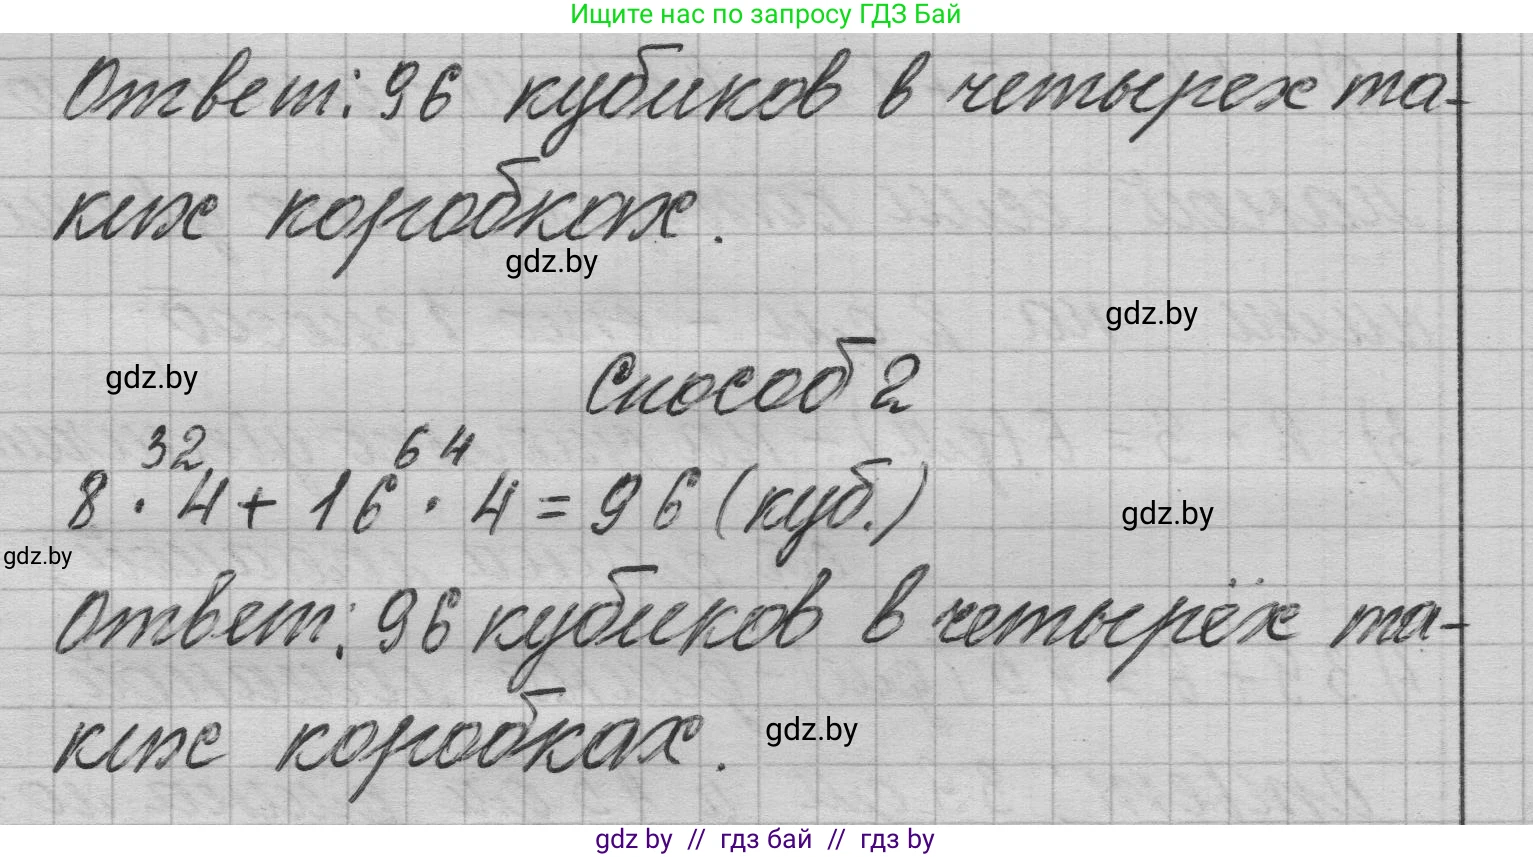 Ищите нас по запросу ГДЗ Бай
Ответ: 96 кубиков в четырех та-
ких коробках.
gdz.by
gdz.by
gdz.by
Способ 2
32 64
8 · 4 + 16 · 4 = 96 (куб.)
gdz.by
gdz.by
Ответ: 96 кубиков в четырёх та-
ких коробках.
gdz.by
gdz by // гдз бай // гдз by